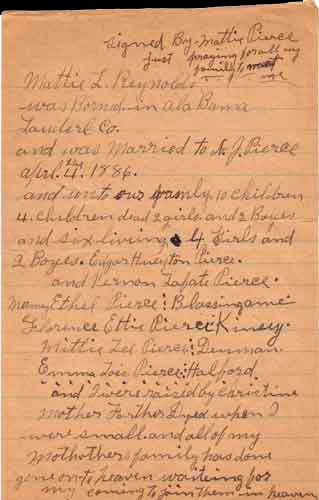 Signed By. Mattie Pierce
Just praying for all my
family to meet
me
Mattie L. Reynolds
was Bornd in Ala Bama
Lauderl Co.
and was Married to A. J. Pierce
Apri. 4th. 1886.
and unto our family 10 children
4. children dead 2 girls and 2 Boyes
and six living 4 Girls and
2 Boyes. Edgar Huegton Pierce.
and Vernon Lafate Pierce.
Ethel Pierce: Blassingame
Florence Ettie Pierce: Kinsey.
Mittie Lee Pierce: Denman.
Emma Lois Pierce: Halford
and I were raized by Christine
Mother Farther Dyed when I
were small and all of my
Mothothers family has done
gone on to heaven waiting for
my coming to join them in heaven